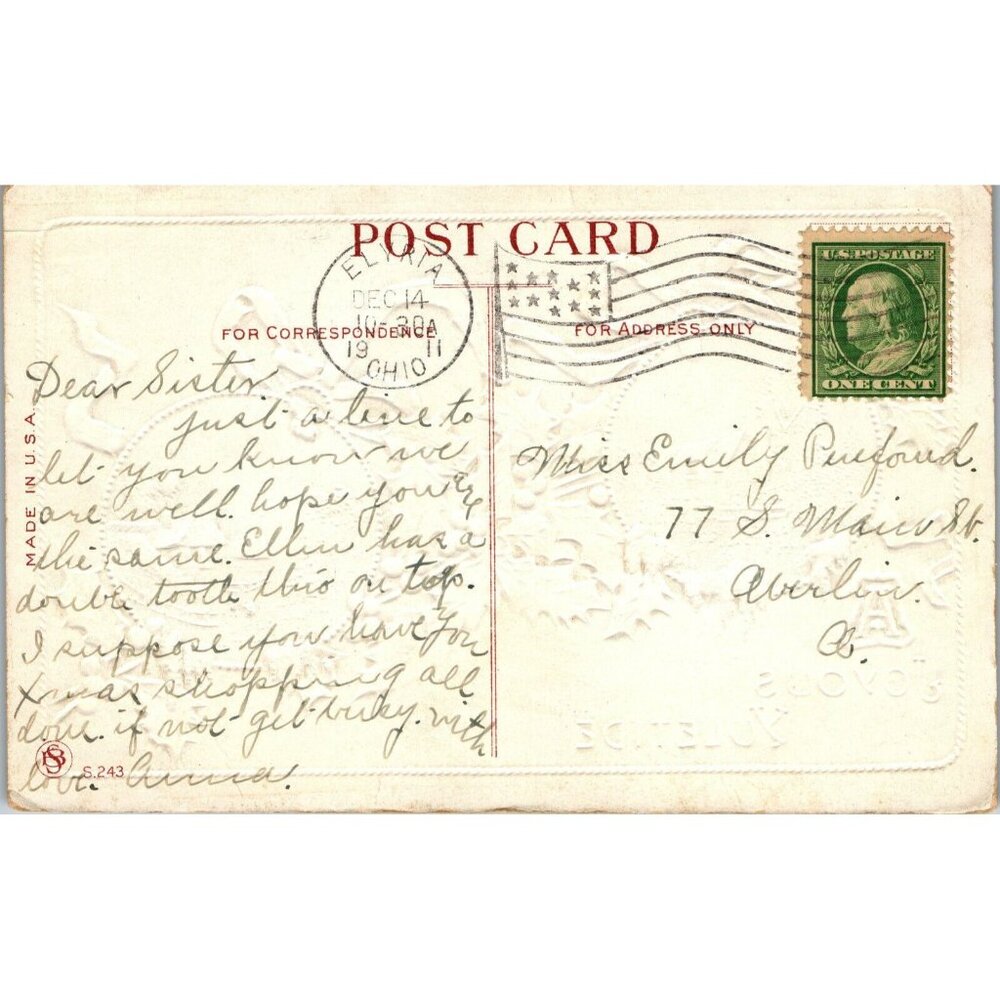 POST CARD
ELYRIA
DEC 14
10-30A
19 11
OHIO
FOR CORRESPONDENCE
FOR ADDRESS ONLY
U.S. POSTAGE
ONE CENT
MADE IN U.S.A.
Dear Sister
just a line to
let you know we
are well. hope you are
the same. Ellen has a
double tooth thro on top.
I suppose you have you
Xmas shopping all
done. if not get busy. with
love. Anna.
SB
S.243
Miss Emily
77 S. Main St.
Oberlin.
O.
A
JOYOUS
YULETIDE